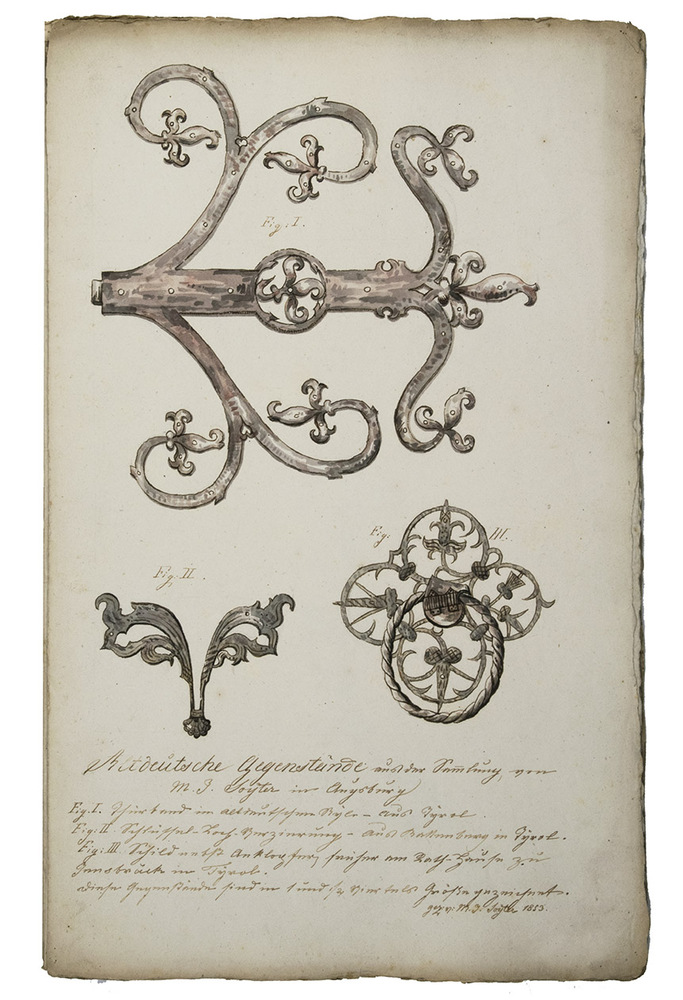 Fig. I.
Fig. II.
Fig. III.
Altdeutsche Gegenstände aus der Samlung, von
M. J. Soÿter in Augsburg
Fig. I. Thürband im altdeutschen Stÿle – aus Tÿrol.
Fig: II. Schlüssel-Loch-Verzierung – aus Rattenberg in Tÿrol.
Fig: III. Schild nebst Anklopfer, früher am Rath-Hause zu
Innsbrück in Tÿrol.
Diese Gegenstände sind in 1 und ½ Viertels Größe gezeichnet.
gez v: M. J. Soÿter 1853.